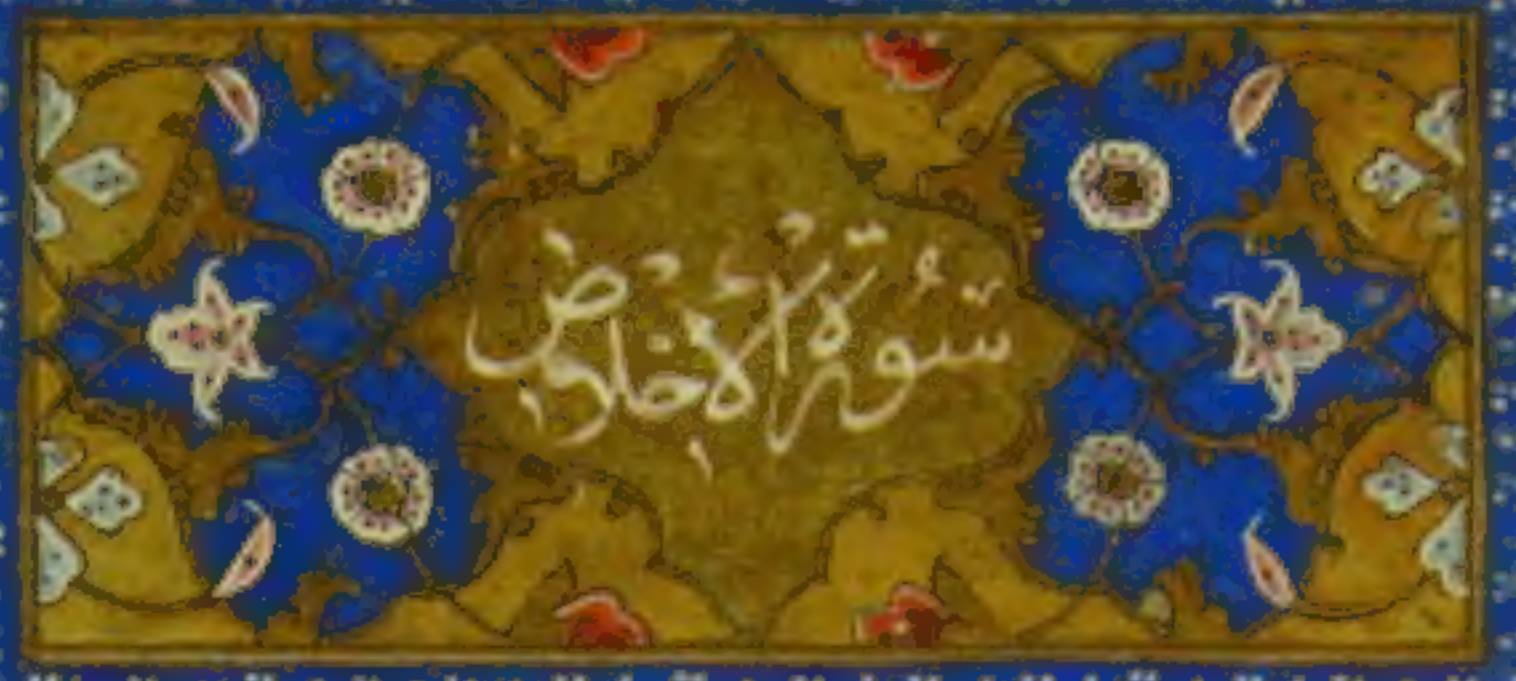 سُورَةُ الْإِخْلَاصِ